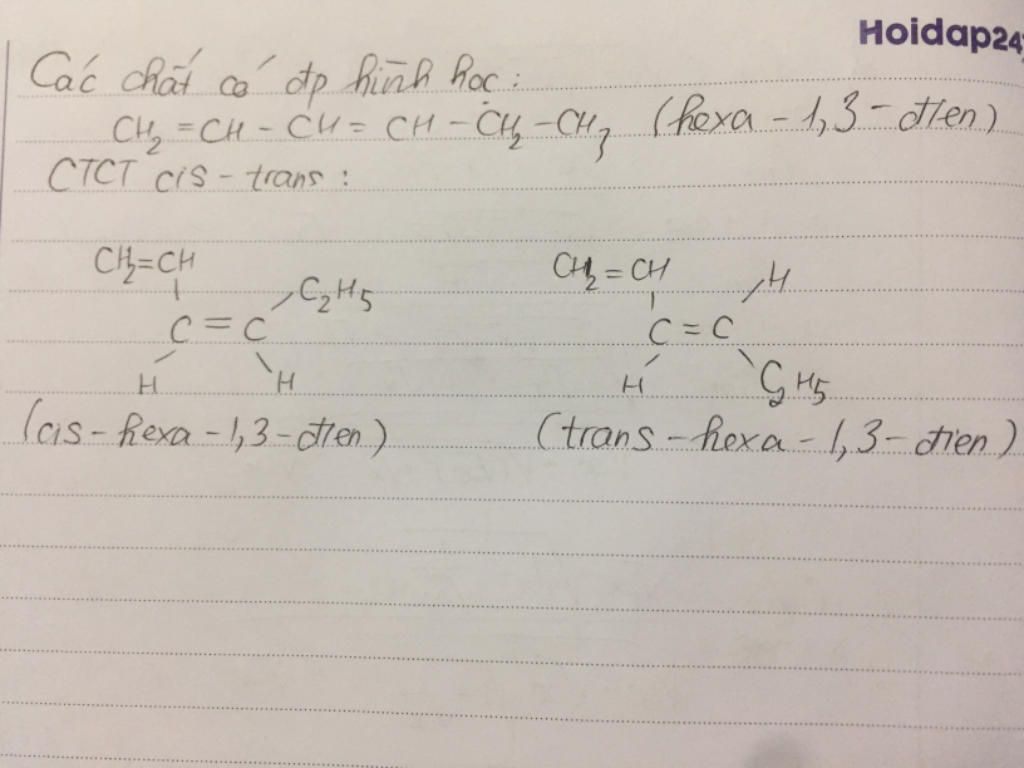 Hoidap247
Các chất có đp hình học:
CH₂ = CH - CH = CH - CH₂ - CH₃ (hexa - 1,3 - đien)
CTCT cis - trans :
CH₂=CH CH₂=CH H
C₂H₅
C = C C = C
H H H C₂H₅
(cis - hexa - 1,3 - đien) (trans - hexa - 1,3 - đien)